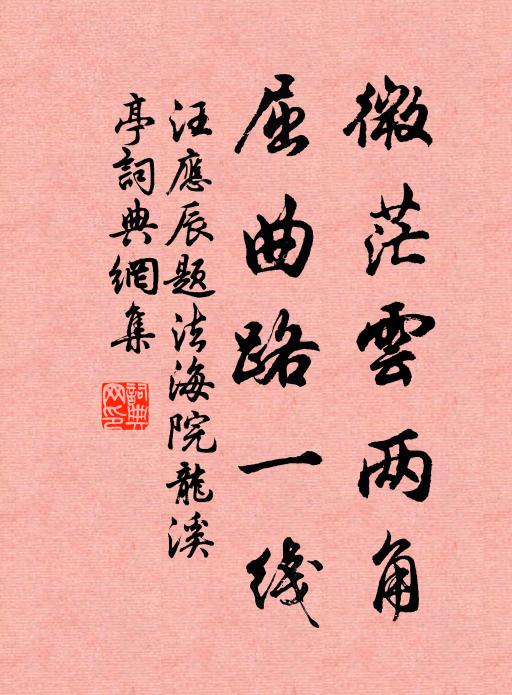 微茫雲两角
屈曲路一线
汪應辰题法海院龍溪
亭詞典網集
詞典
网印